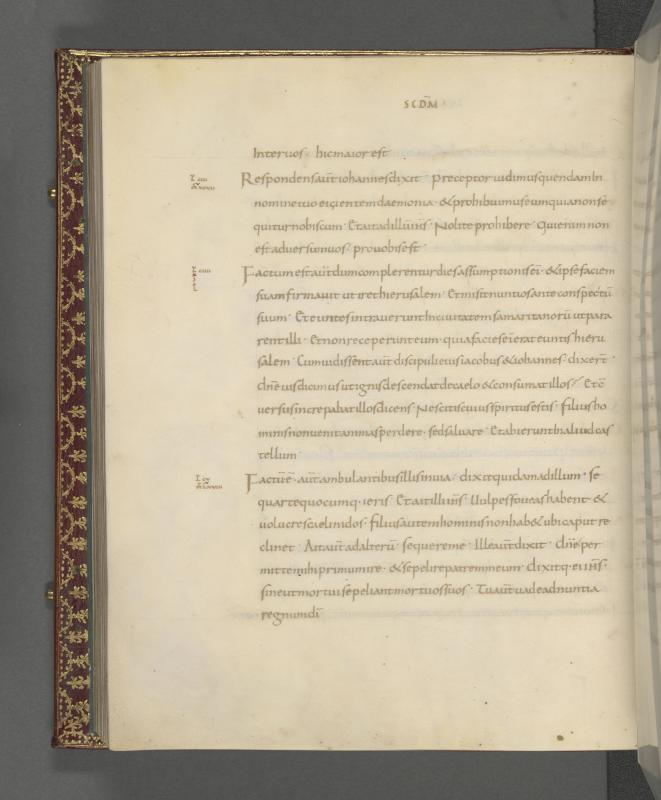 SCDM̄
Inter uos· hic maior est
Respondens aut̄ iohannes dixit· Preceptor uidimus quendam in
nomine tuo eicientem daemonia· & prohibuimus eum quia non se
quitur nobiscum· Et ait ad illum ih̄s· Nolite prohibere· Qui enim non
est aduersum uos· pro uobis est·
Factum est aut̄ dum complerentur dies assumptionis ei· & ipse faciem
suam firmauit ut iret hierusalem· Et misit nuntios ante conspectū
suum· Et euntes intrauerunt in ciuitatem samaritanorū ut para
rent illi· Et non receperunt eum· quia facies ei erat euntis hieru
salem· Cum uidissent aut̄ discipuli eius iacobus & iohannes· dixer̄t·
dn̄e uis dicimus ut ignis descendat de caelo & consumat illos· Et cō
uersus increpabat illos dicens· Nescitis cuius spiritus estis· filius ho
minis non uenit animas perdere· sed saluare· Et abierunt in aliud cas
tellum·
Factū ē· aut̄ ambulantibus illis in uia· dixit quidam ad illum· se
quar te quocumq· ieris· Et ait illi ih̄s· Uulpes foueas habent· &
uolucres caeli nidos· filius autem hominis non hab& ubi caput re
clinet· Ait aut̄ ad alterū· sequere me· Ille aut̄ dixit· dn̄e per
mitte mihi primum ire· & sepelire patrem meum· dixitq· ei ih̄s·
sine ut mortui sepeliant mortuos suos· Tu aut̄ uade adnuntia
regnum dī